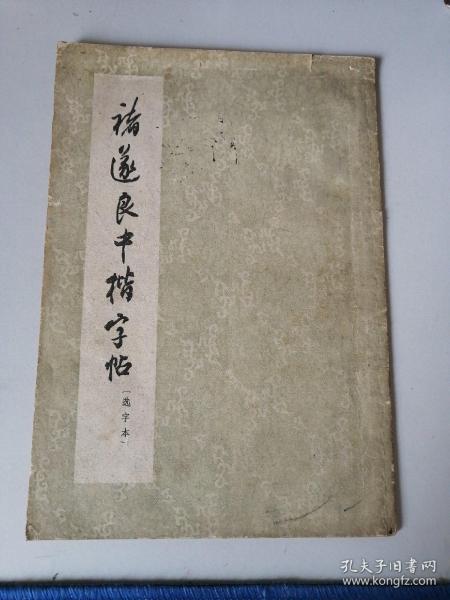 褚遂良中楷字帖
(选字本)
孔夫子旧书网
www.kongfz.com